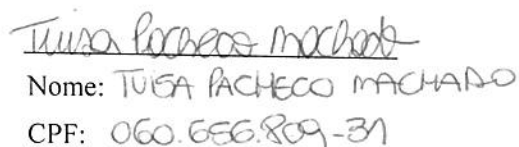 Tuisa Pacheco Machado
Nome: TUISA PACHECO MACHADO
CPF: 060.656.809-31